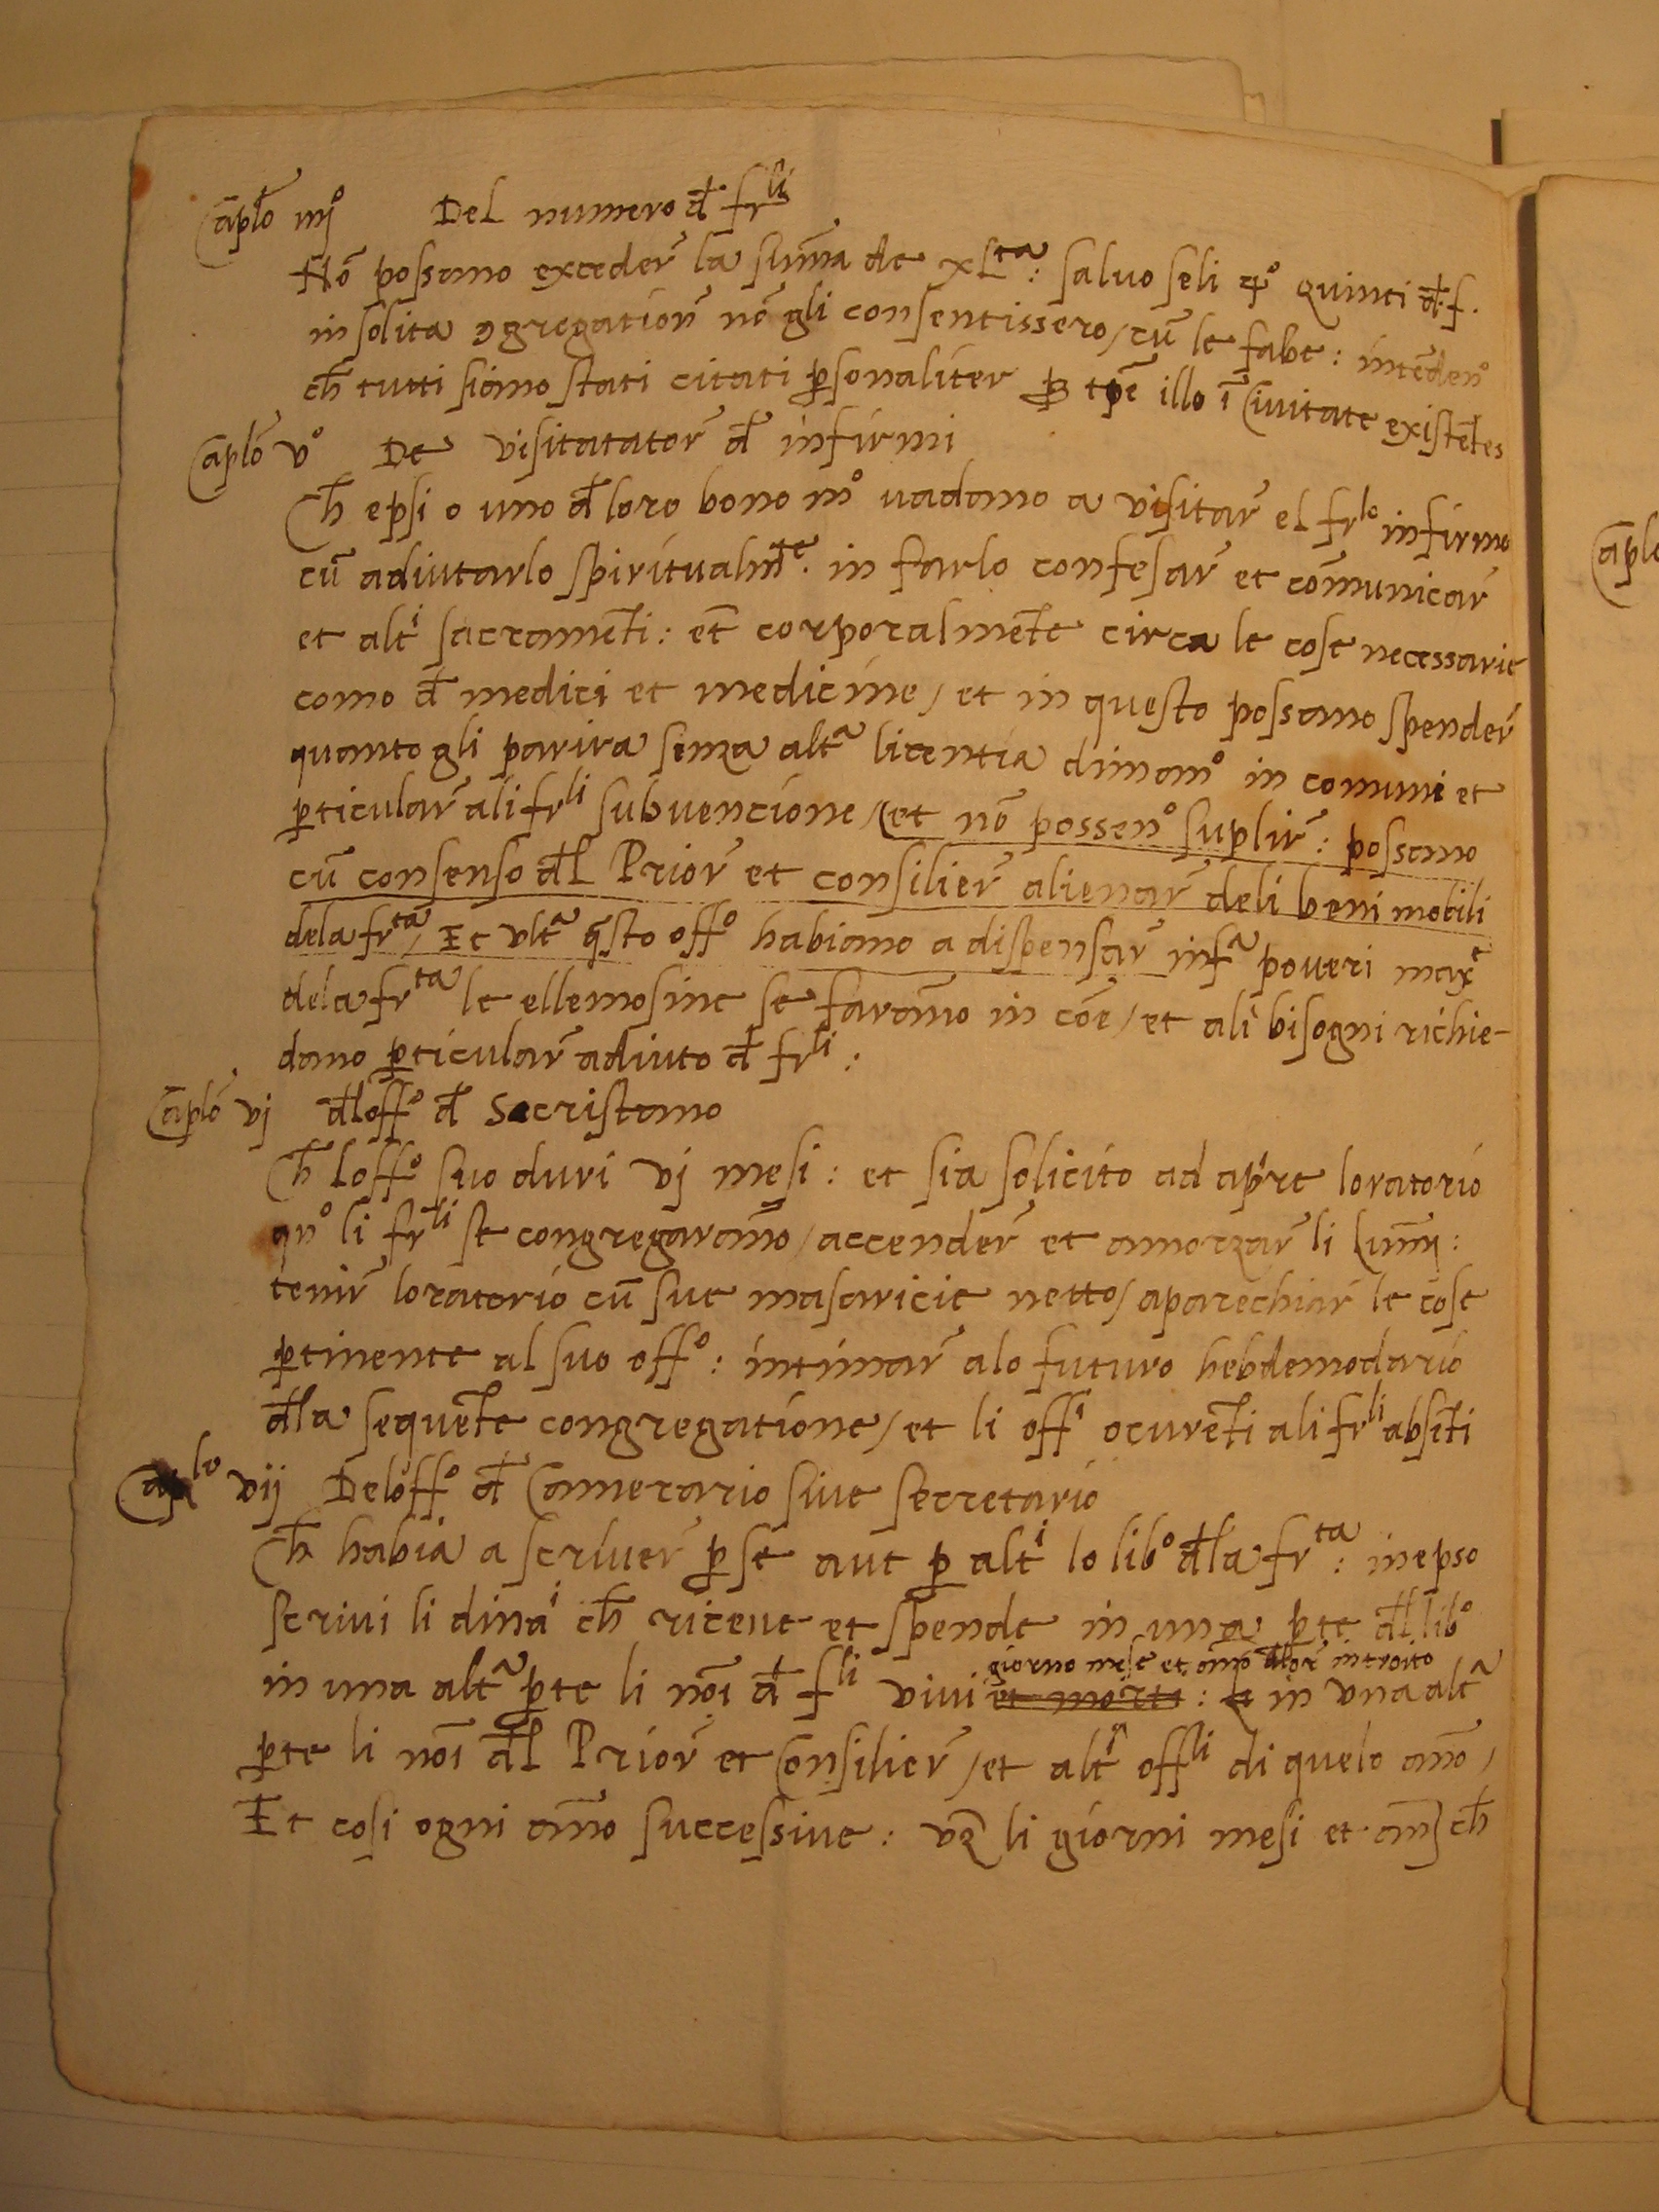 Caplō iiijº Del numero đ frˡⁱ
Nō possano excederē la sum̄a de xlᵗᵃ: saluo seli 4º quinti đ. f.
in solita ꝯgregationē nō gli consentissero / cū le fabe: intēdenº
ch̄ tutti siano stati citati ꝑsonaliter ꝓ tꝑe illo ī Ciuitate existētes
Caplō vº De visitatatorē đ infirmi
Ch̄ epsi o uno đ loro bono mº uadano a visitarē el frˡᵒ infirmo
cū adiutarlo spiritualm̄ᵗᵉ. in farlo confesarē et cōmunicarē
et altⁱ sacramēti: et̄ corporalmēte circa le cose necessarie
como đ medici et medicine / et in questo possano spenderē
quanto gli parira senza altᵃ licentia dimanº in comuni et
ꝑticularē ali frˡⁱ subuencione / (et nō possenº suplirē: possano
cū consenso đl Priorē et consilierē alienarē deli beni mobili
dela frᵗᵃ / Et vltᵃ q̄sto offº habiano a dispensarē infᵃ poueri maxᵉ
dela frᵗᵃ le ellemosine se faran̄o in cōe / et ali bisogni richie-
dano ꝑticularē adiuto đ frˡⁱ:
Caplō vj đloffº đ Sacristano
Ch̄ loffº suo duri vj mesi: et sia solicito ad apⁱre loratorio
qnº li frˡⁱ se congregaran̄o / accenderē et amorzarē li Lum̄j:
tenirē loratorio cū sue masaricie netto / aparechiarē le cose
ꝑtinente al suo offº: intimarē alo futuro hebdemodario
đla sequēte congregatione / et li offⁱ ocurēti ali frˡⁱ absēti
Caplᵒ vij Deloffº đ Camerario siue secretario
Ch̄ habia a scriuerē ꝑ se aut ꝑ altⁱ lo libº đla frᵗᵃ: in epso
scriui li dinaⁱ ch̄ riceue et spende in una ꝑte đl libº
giorno mese et an̄o đlorē introito
in una altᵃ ꝑte li nōi đ fˡⁱ viui et morti: in vna altᵃ
ꝑte li nōi đl Priorē et Consilierē / et altⁱ offˡⁱ di quelo an̄o /
Et cosi ogni an̄o successiue: vꝫ li giorni mesi et an̄j ch̄
Caplō